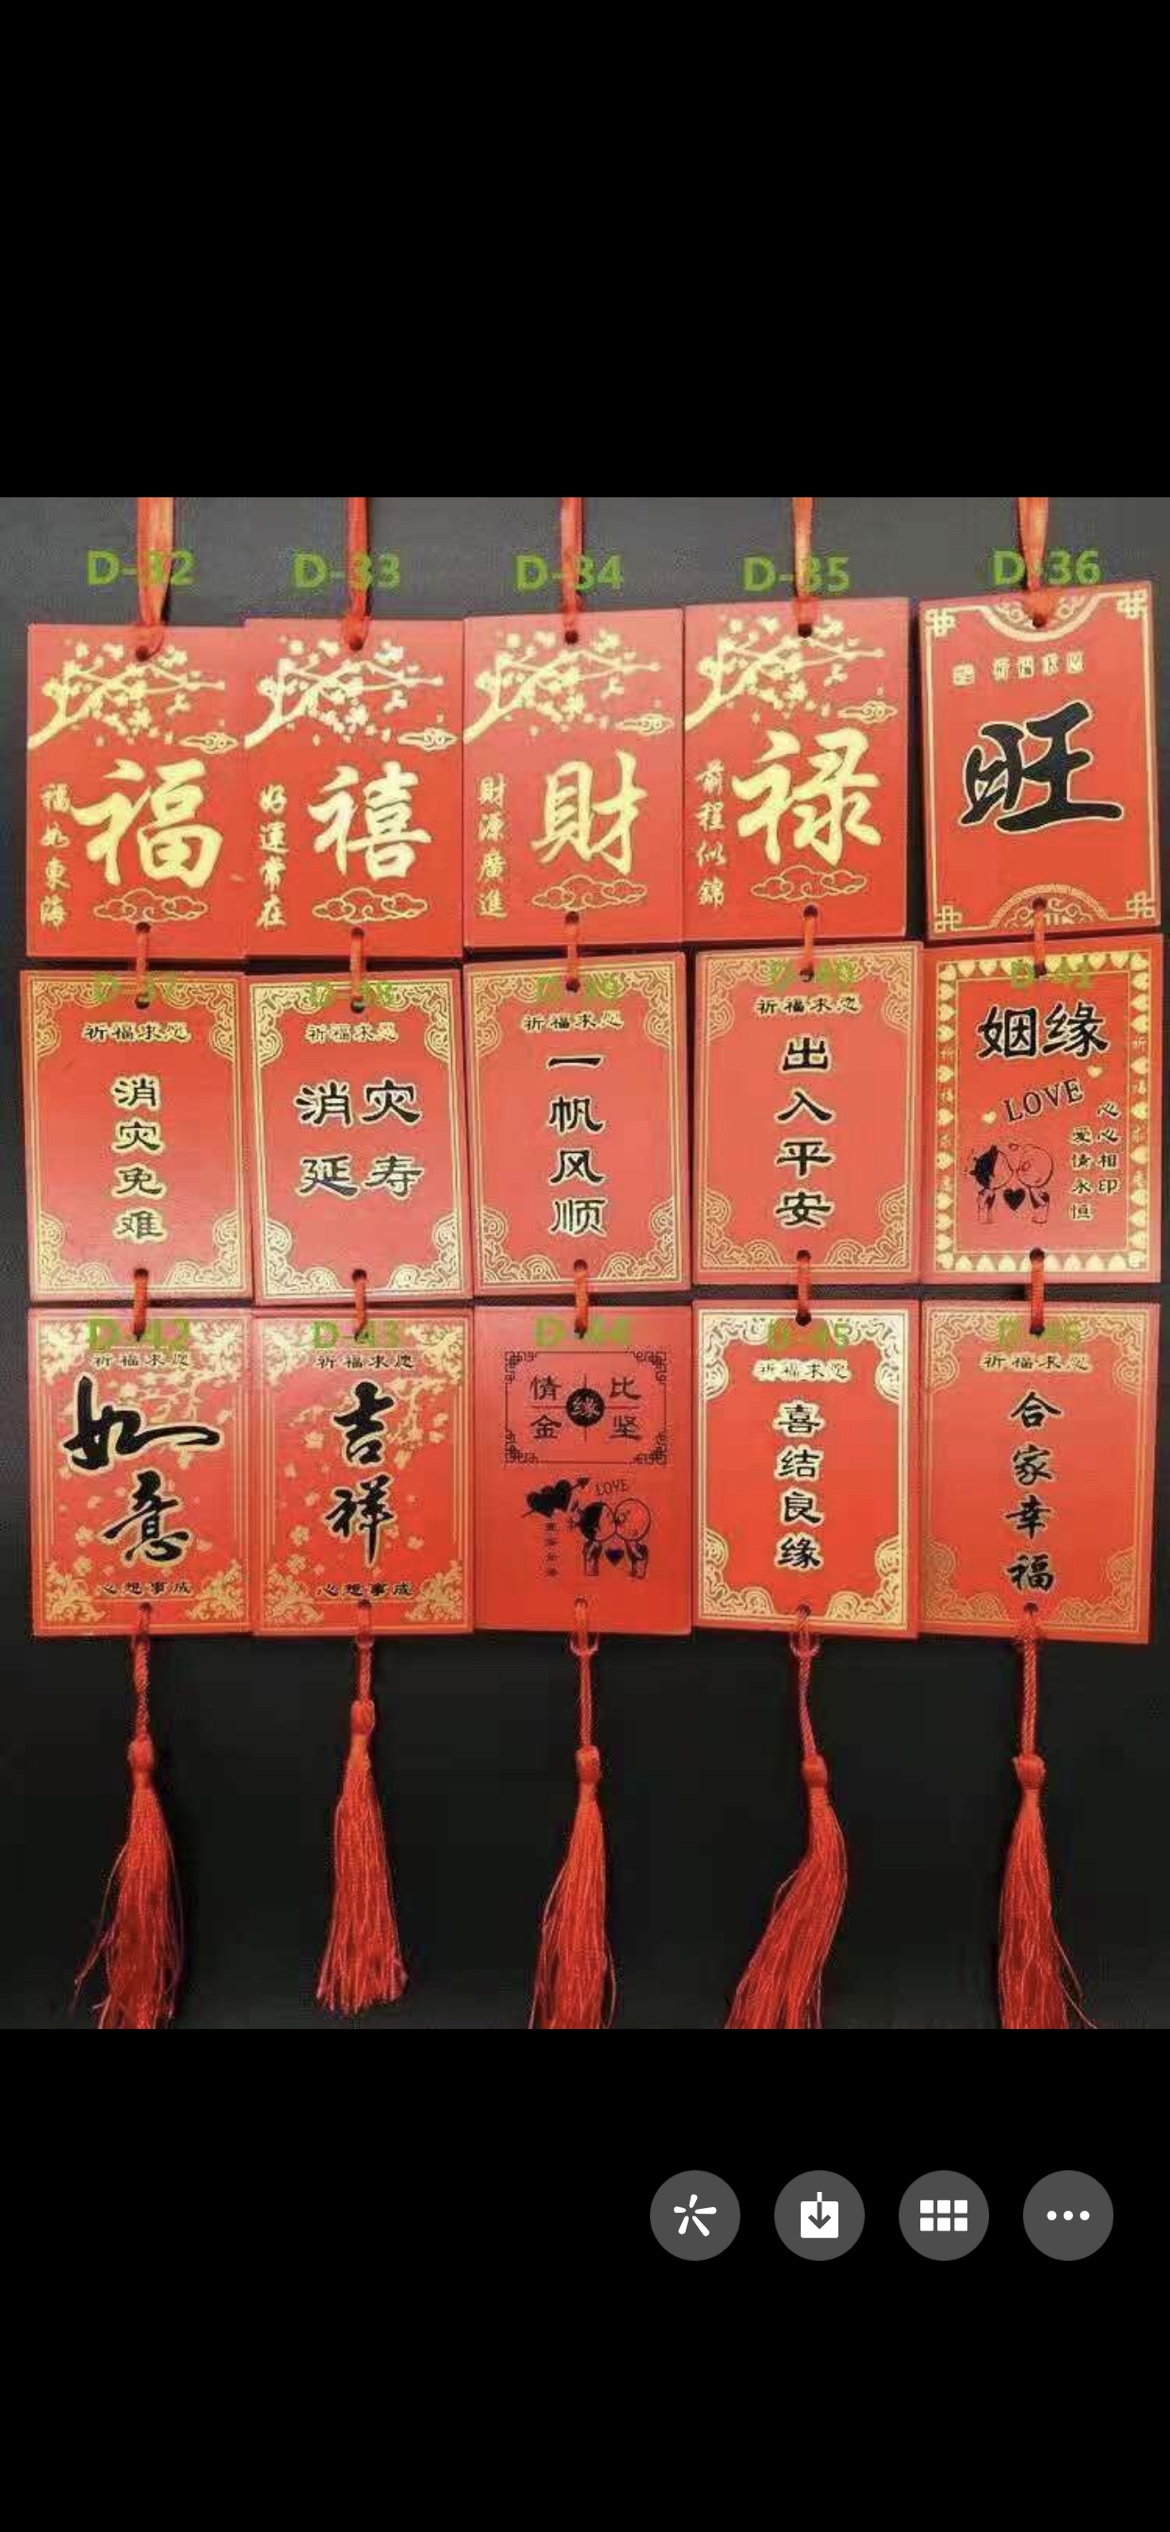 D-32
福
福如東海
D-33
禧
好運常在
D-34
財
財源廣進
D-35
禄
前程似錦
D-36
祈福求愿
旺
D-37
祈福求愿
消灾免难
D-38
祈福求愿
消灾
延寿
D-39
祈福求愿
一帆风顺
D-40
祈福求愿
出入平安
D-41
姻缘
LOVE
心心相印
爱情永恒
D-42
祈福求愿
如意
心想事成
D-43
祈福求愿
吉祥
心想事成
D-44
情比
缘
金坚
LOVE
D-45
祈福求愿
喜结良缘
D-46
祈福求愿
合家幸福